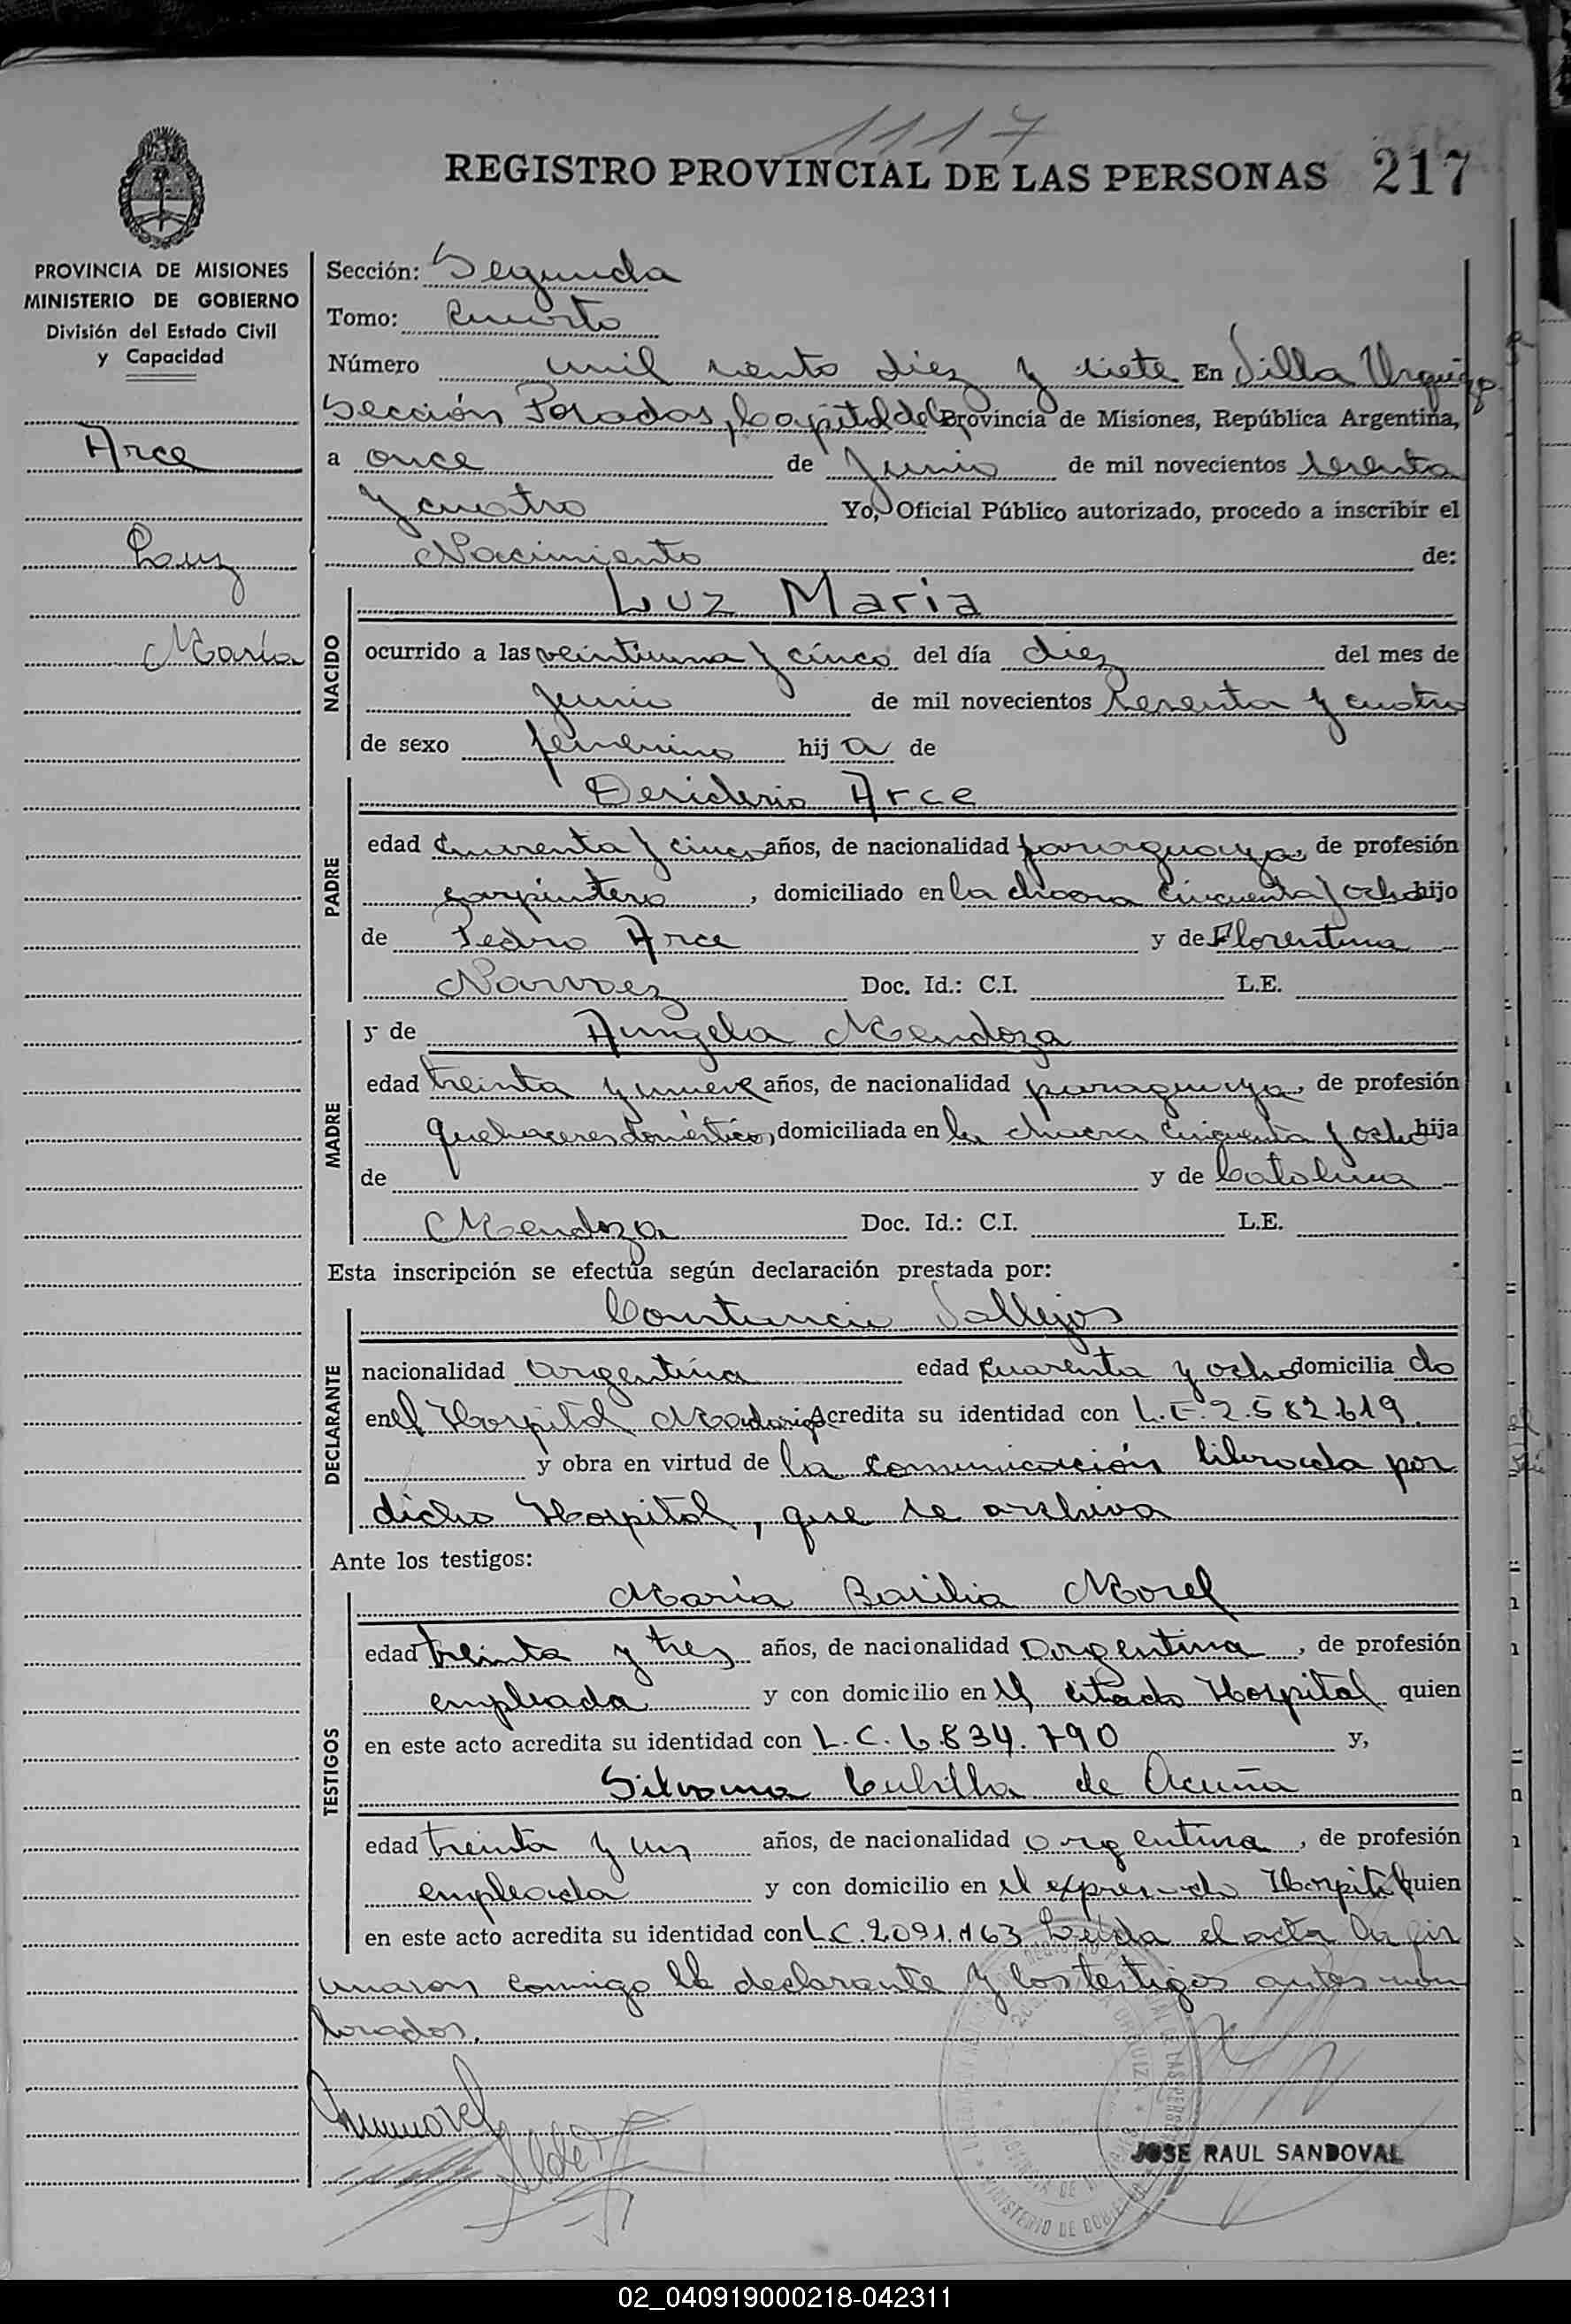 1117
REGISTRO PROVINCIAL DE LAS PERSONAS 217
PROVINCIA DE MISIONES
MINISTERIO DE GOBIERNO
División del Estado Civil
y Capacidad
Arce
Luz
María
Sección: Segunda
Tomo: Cuarto
Número mil ciento diez y siete En Villa Urquiza
Sección Posadas, Capital de la Provincia de Misiones, República Argentina,
a once de Junio de mil novecientos sesenta
y cuatro Yo, Oficial Público autorizado, procedo a inscribir el
Nacimiento de:
NACIDO
Luz Maria
ocurrido a las veintiuna y cinco del día diez del mes de
Junio de mil novecientos sesenta y cuatro
de sexo femenino hij a de
PADRE
Desiderio Arce
edad cuarenta y cinco años, de nacionalidad paraguaya, de profesión
carpintero, domiciliado en la chacra cincuenta y ocho hijo
de Pedro Arce y de Florentina
Narvaez Doc. Id.: C.I. L.E.
MADRE
y de Angela Mendoza
edad treinta y nueve años, de nacionalidad paraguaya, de profesión
quehaceres domésticos, domiciliada en la chacra cincuenta y ocho hija
de y de Catalina
Mendoza Doc. Id.: C.I. L.E.
Esta inscripción se efectúa según declaración prestada por:
DECLARANTE
Vallejos
nacionalidad argentina edad cuarenta y ocho domicilia do
en el Hospital Madariaga Acredita su identidad con L.E. 2.582.619.
y obra en virtud de la comunicación librada por
dicho Hospital, que se archiva
Ante los testigos:
TESTIGOS
María Basilia Morel
edad treinta y tres años, de nacionalidad argentina, de profesión
empleada y con domicilio en el citado Hospital quien
en este acto acredita su identidad con L.C. 6.834.790 y,
Silvana Cubilla de Acuña
edad treinta y un años, de nacionalidad argentina, de profesión
empleada y con domicilio en el expresado Hospital quien
en este acto acredita su identidad con L.C. 2.091.163 Leída el acta la fir
maron conmigo el declarante y los testigos antes nom
brados.
JOSE RAUL SANDOVAL
02_040919000218-042311